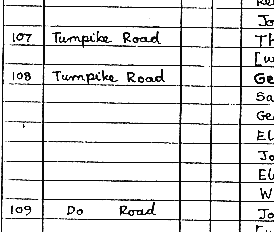 Jo
107 Turnpike Road Th
[w
108 Turnpike Road Ge
Sa
Ge
El
Jo
El
W
109 Do Road Jo